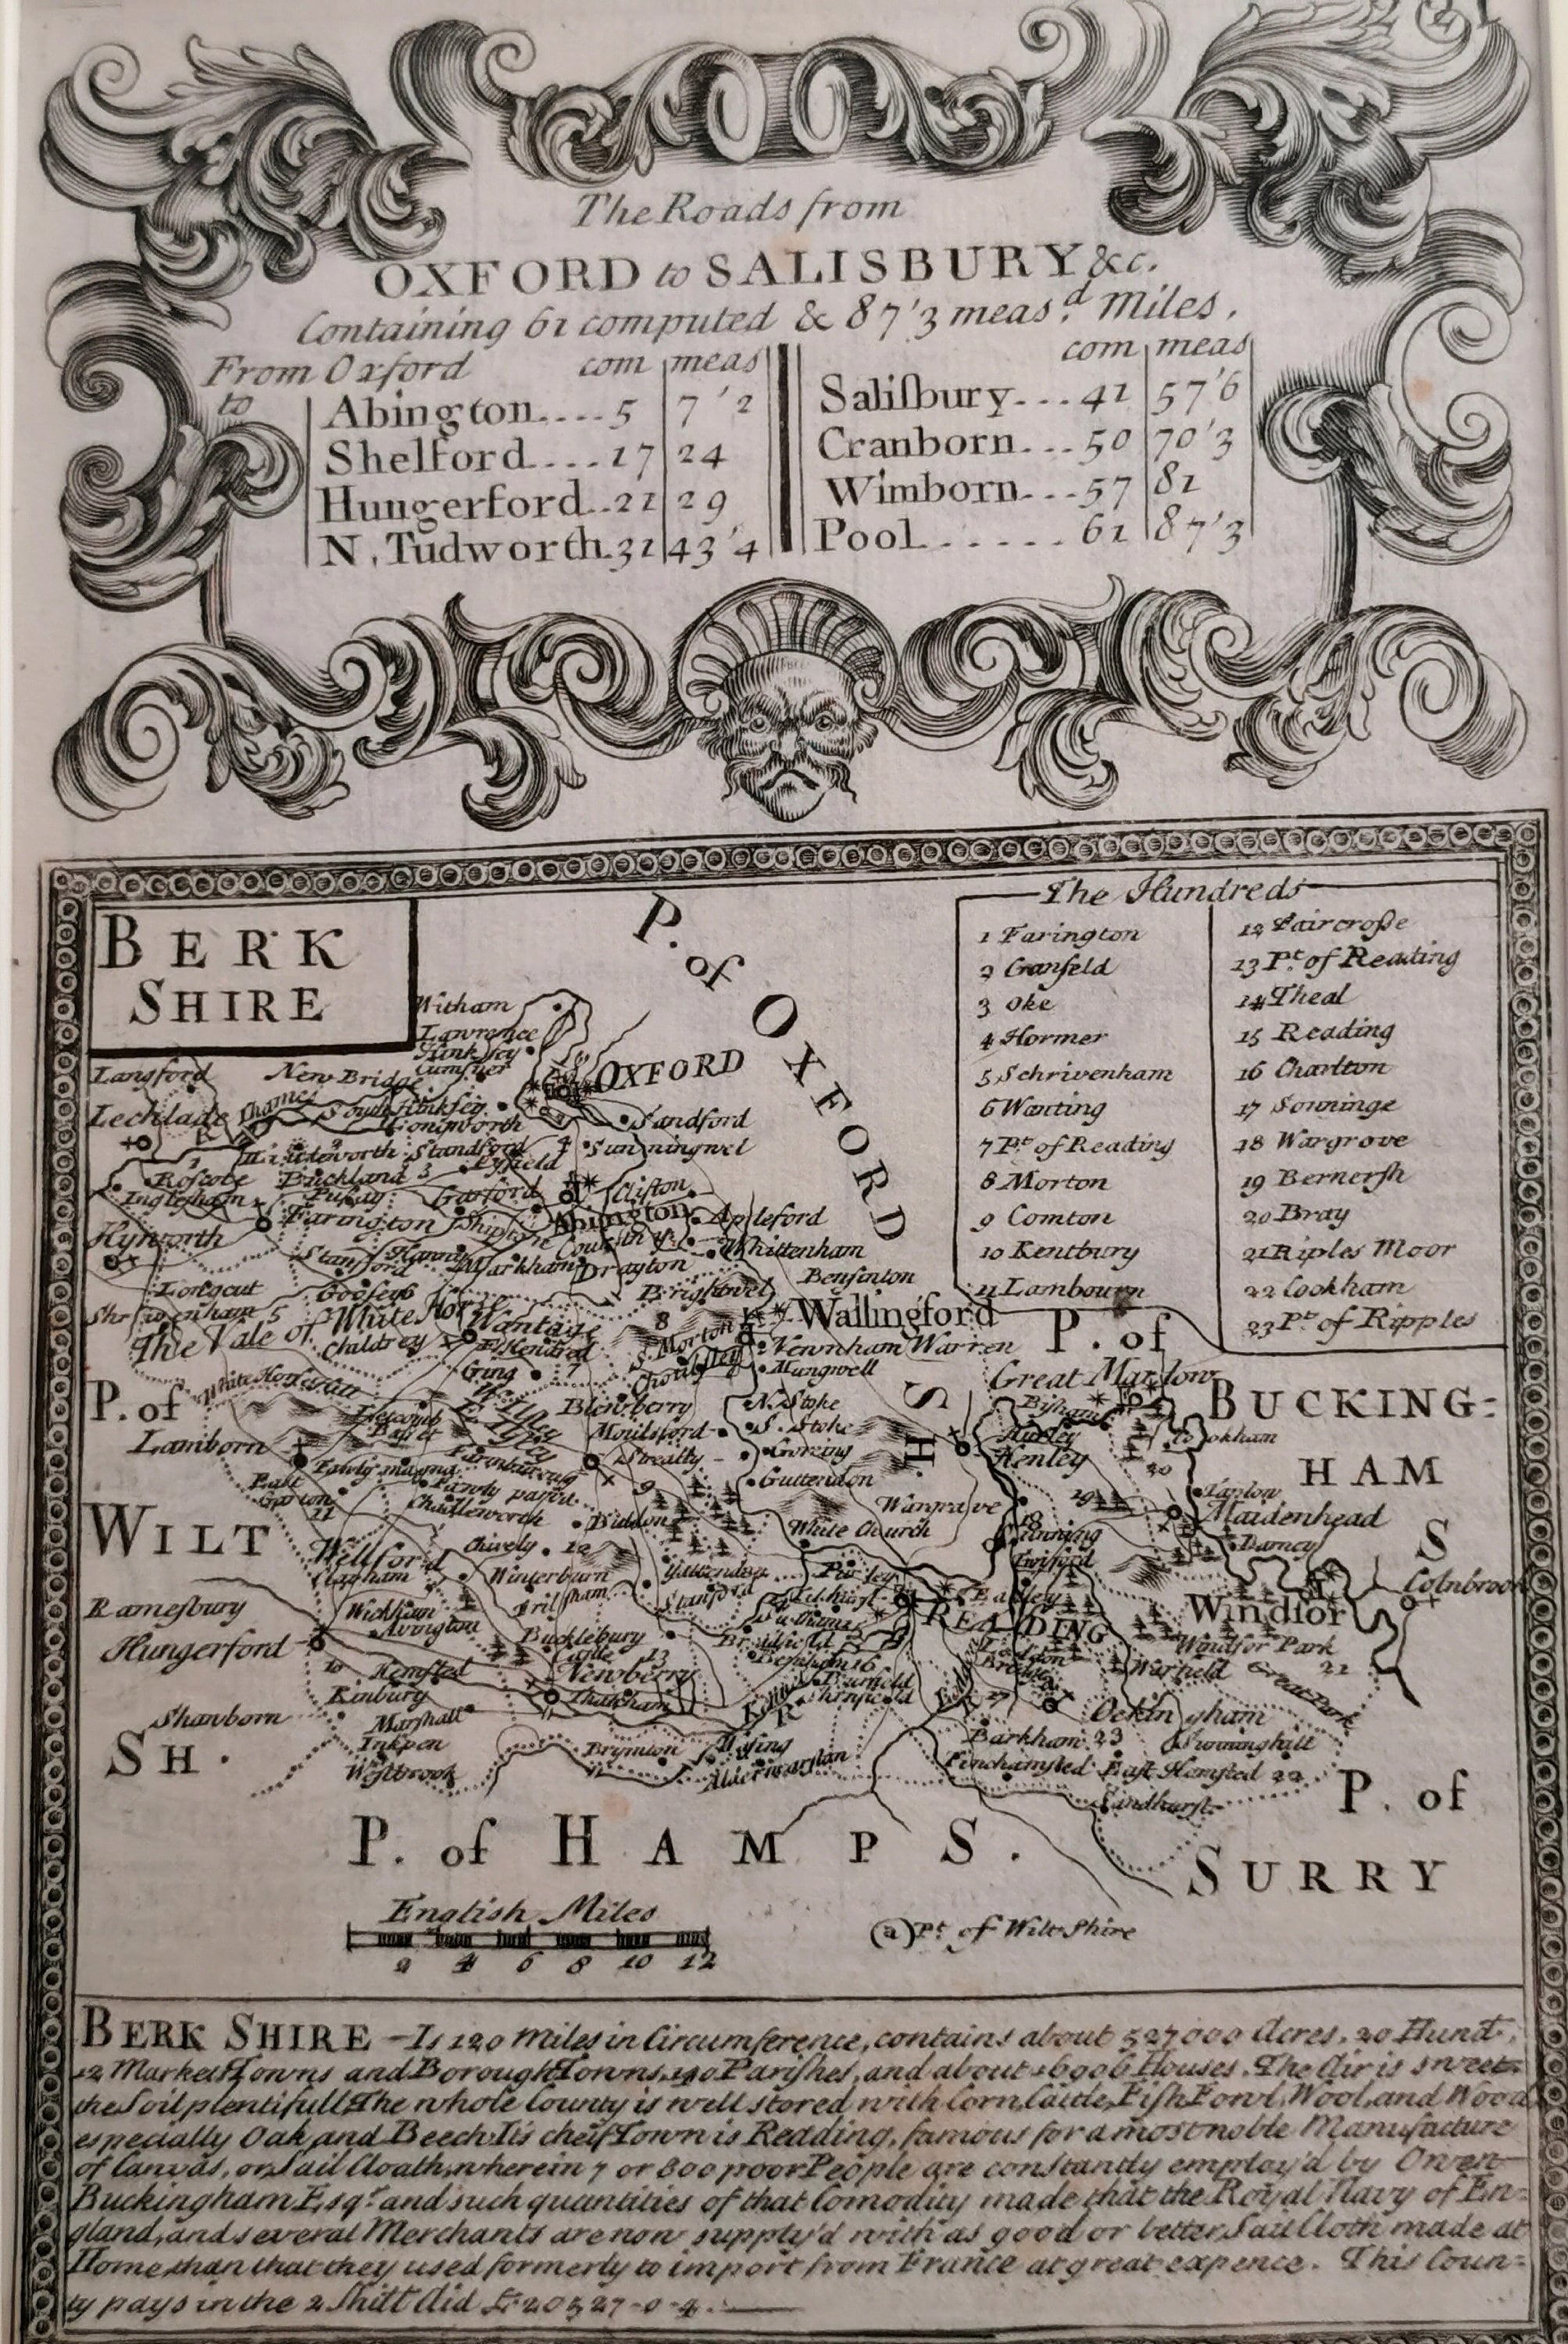 The Roads from
OXFORD to SALISBURY &c.
Containing 61 computed & 87'3 meas.d Miles.
From Oxford com meas
to
Abington....5 7'2
Shelford....17 24
Hungerford..21 29
N. Tudworth.31 43'4
com meas
Saliſbury...41 57'6
Cranborn...50 70'3
Wimborn...57 81
Pool......61 87'3
BERK
SHIRE
The Hundreds
1 Farington
2 Ganfeld
3 Oke
4 Hormer
5 Schrivenham
6 Wanting
7 Pt of Reading
8 Morton
9 Comton
10 Kentbury
11 Lambourn
12 Faircroſse
13 Pt. of Reading
14 Theal
15 Reading
16 Charlton
17 Sonninge
18 Wargrove
19 Bernersh
20 Bray
21 Riples Moor
22 Cookham
23 Pt of Ripples
P. of OXFORD SH.
Witham
Lawrence
Hinkſey
Cumſner
OXFORD
Langford
New Bridge
Lechlade
R Thames
Hinkſey
Longworth
Sandford
Standford
Sunningwel
Fyfield
Roſcote
Buckland 3
Inglesham
Puſay
Garford
Clifton
Farington
Abington
Apleford
Hyworth
Whittenham
Stanford
Hanny
Markham
Drayton
Benſinton
Longcut
Gooſey 6
Brightwel
Shrivenham 5
The Vale of White Horſ
Wantage
8
Wallingford
Childrey
S. Morton
Newnham Warren
Ging
7
Mungwell
White Horſe Hill
P. of
Great Marlow
BUCKING=
HAM
S
Blewberry
N. Stoke
S. Stoke
Moulsford
Lamborn
Goreing
Hurley
Cookham
Streatly
Henley
Fawly magna
Farnbaroug
Guttendon
Fawly parva
9
20
East
Garston
11
Chaddleworth
Wargrave
19
Taplow
Maidenhead
WILT
White Church
18
Sunning
Chively
12
Darney
Wellford
Winterburn
Yattenden
Purley
Twiford
Colnbroo
Ramesbury
Wickham
Avington
Frilſham
Stanford
READING
Windſor
Hungerford
Bucklebury
13
Windſor Park
Warfield
Great Park
21
10
Hemſted
Newberry
16
Kinbury
Thatcham
Shawborn
Marshall
17
Okingham
SH.
Inkpen
Brymton
Barkham
23
Sunninghill
Westbrook
AlderMarſton
Finchamſted
Eaſt Hemſted 22
Sandhurſt
P. of HAMPS.
P. of
SURRY
English Miles
2 4 6 8 10 12
(a) Pt. of Wilt Shire
BERK SHIRE - Is 120 Miles in Circumference, contains about 527000 Acres, 20 Hund.
12 Market Towns and Borough Towns, 140 Pariſhes, and about 16906 Houses. The Air is sweet
the Soil plentifull. The whole County is well stored with Corn, Cattle, Fiſh, Fowl, Wool, and Wood
especially Oak and Beech. It's cheif Town is Reading, famous for a most noble Manufacture
of Canvas, or Sail Cloath, wherein 7 or 800 poor People are constantly employ'd by Owen
Buckingham Esqr. and such quantities of that Comodity made that the Royal Navy of En=
gland, and several Merchants are now supply'd with as good or better Sail Cloth made at
Home than that they used formerly to import from France at great expence. This Coun=
ty pays in the 2 Shill Aid £ 20527-0-4.